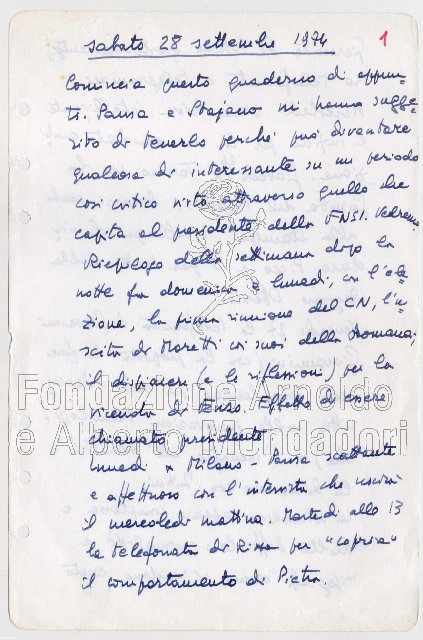 sabato 28 settembre 1974
1
Comincia questo quaderno di appun-
ti. Pansa e Stajano mi hanno sugge-
rito di tenerlo perché può diventare
qualcosa di interessante su un periodo
così critico visto attraverso quello che
capita al presidente della FNSI. Vedremo
Riepilogo della settimana dopo la
notte fra domenica e lunedì, con l'ele-
zione, la prima riunione del CN, l'u-
scita di Moretti coi suoi della Romana;
il dispiacere (e le riflessioni) per la
vicenda di Enzo. Effetto di essere
chiamato presidente
Lunedì a Milano - Pansa scattante
e affettuoso con l'intervista che uscirà
il mercoledì mattina. Martedì alle 13
la telefonata di per "coprire"
il comportamento di Pietra.
Fondazione Arnoldo
e Alberto Mondadori